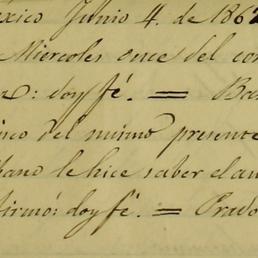 éxico Junio 4. de 1862
Miercoles once del cor
a: doy fé. = Bar
inco del mismo presente
bano le hice saber el au
firmó: doy fé. = Prado